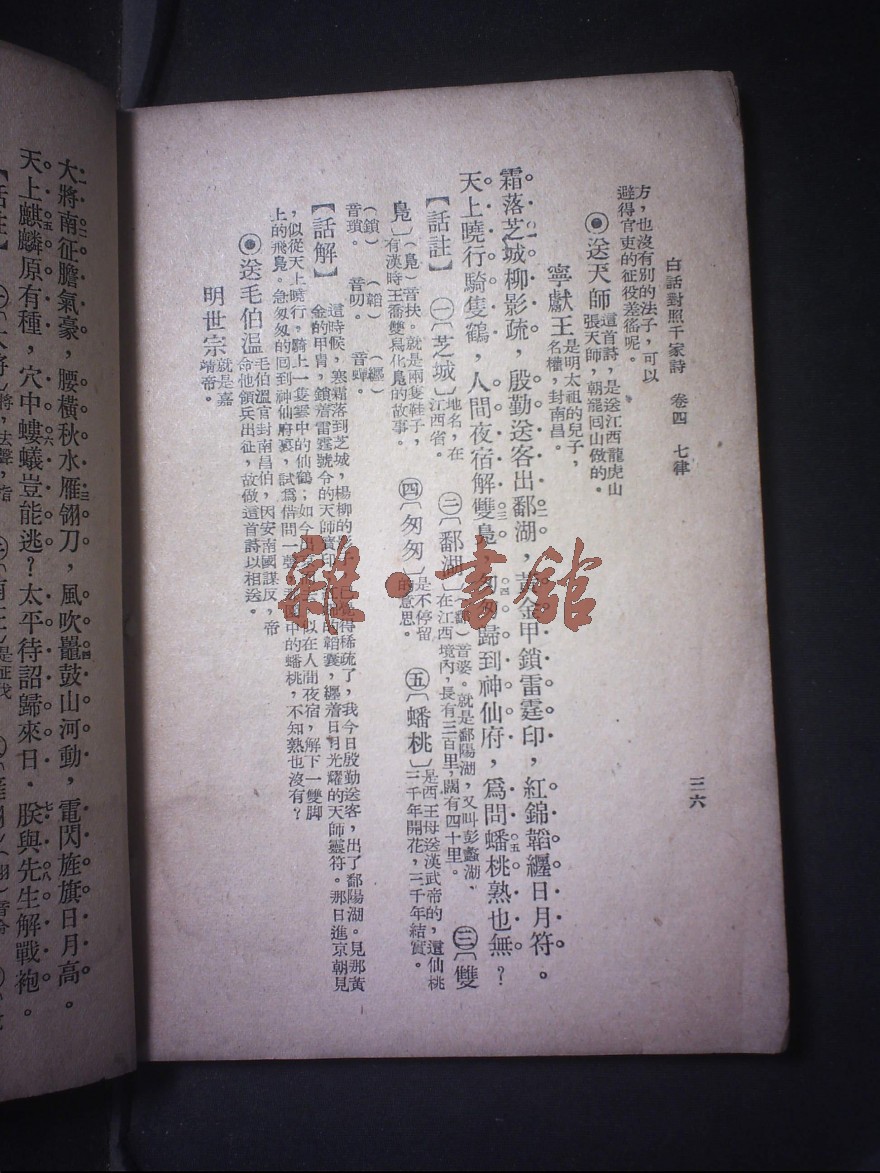 白話對照千家詩 卷四 七律
三六
方，也沒有別的法子，可以
避得官吏的征役差徭呢。
◉送天師
這首詩，是送江西龍虎山
張天師，朝罷回山做的。
寧獻王
是明太祖的兒子，
名權，封南昌。
霜落芝城柳影疏，殷勤送客出鄱湖，黃金甲鎖雷霆印，紅錦韜纏日月符。
天上曉行騎隻鶴，人間夜宿解雙鳧，匆匆歸到神仙府，爲問蟠桃熟也無？
【話註】㊀〔芝城〕地名，在江西省。 ㊁〔鄱湖〕（鄱）音婆。就是鄱陽湖，又叫彭蠡湖，在江西境內，長有三百里，闊有四十里。 ㊂〔雙
鳧〕（鳧）音扶。就是兩隻鞋子，有漢時王喬雙舄化鳧的故事。 ㊃〔匆匆〕是不停留的意思。 ㊄〔蟠桃〕是西王母送漢武帝的，這仙桃三千年開花，三千年結實。
（鎖）音瑣。 （韜）音叨。 （纏）音蟬。
【話解】這時候，寒霜落到芝城，楊柳的影，已覺得稀疏了，我今日殷勤送客，出了鄱陽湖。見那黃
金的甲冑，鎖着雷霆號令的天師寶印，紅錦的韜囊，纏着日月光耀的天師靈符。那日進京朝見
，似從天上曉行，騎上一隻雲中的仙鶴；如今出似在人間夜宿，解下一雙脚
上的飛鳧。急匆匆的回到神仙府裏，試爲借問一聲，園中的蟠桃，不知熟也沒有？
◉送毛伯溫
毛伯溫官封南昌伯，因安南國謀反，帝
命他領兵出征，故做這首詩以相送。
明世宗
就是嘉
靖帝。
大將南征膽氣豪，腰橫秋水雁翎刀，風吹鼉鼓山河動，電閃旌旗日月高。
天上麒麟原有種，穴中螻蟻豈能逃？太平待詔歸來日，朕與先生解戰袍。
雜·書館